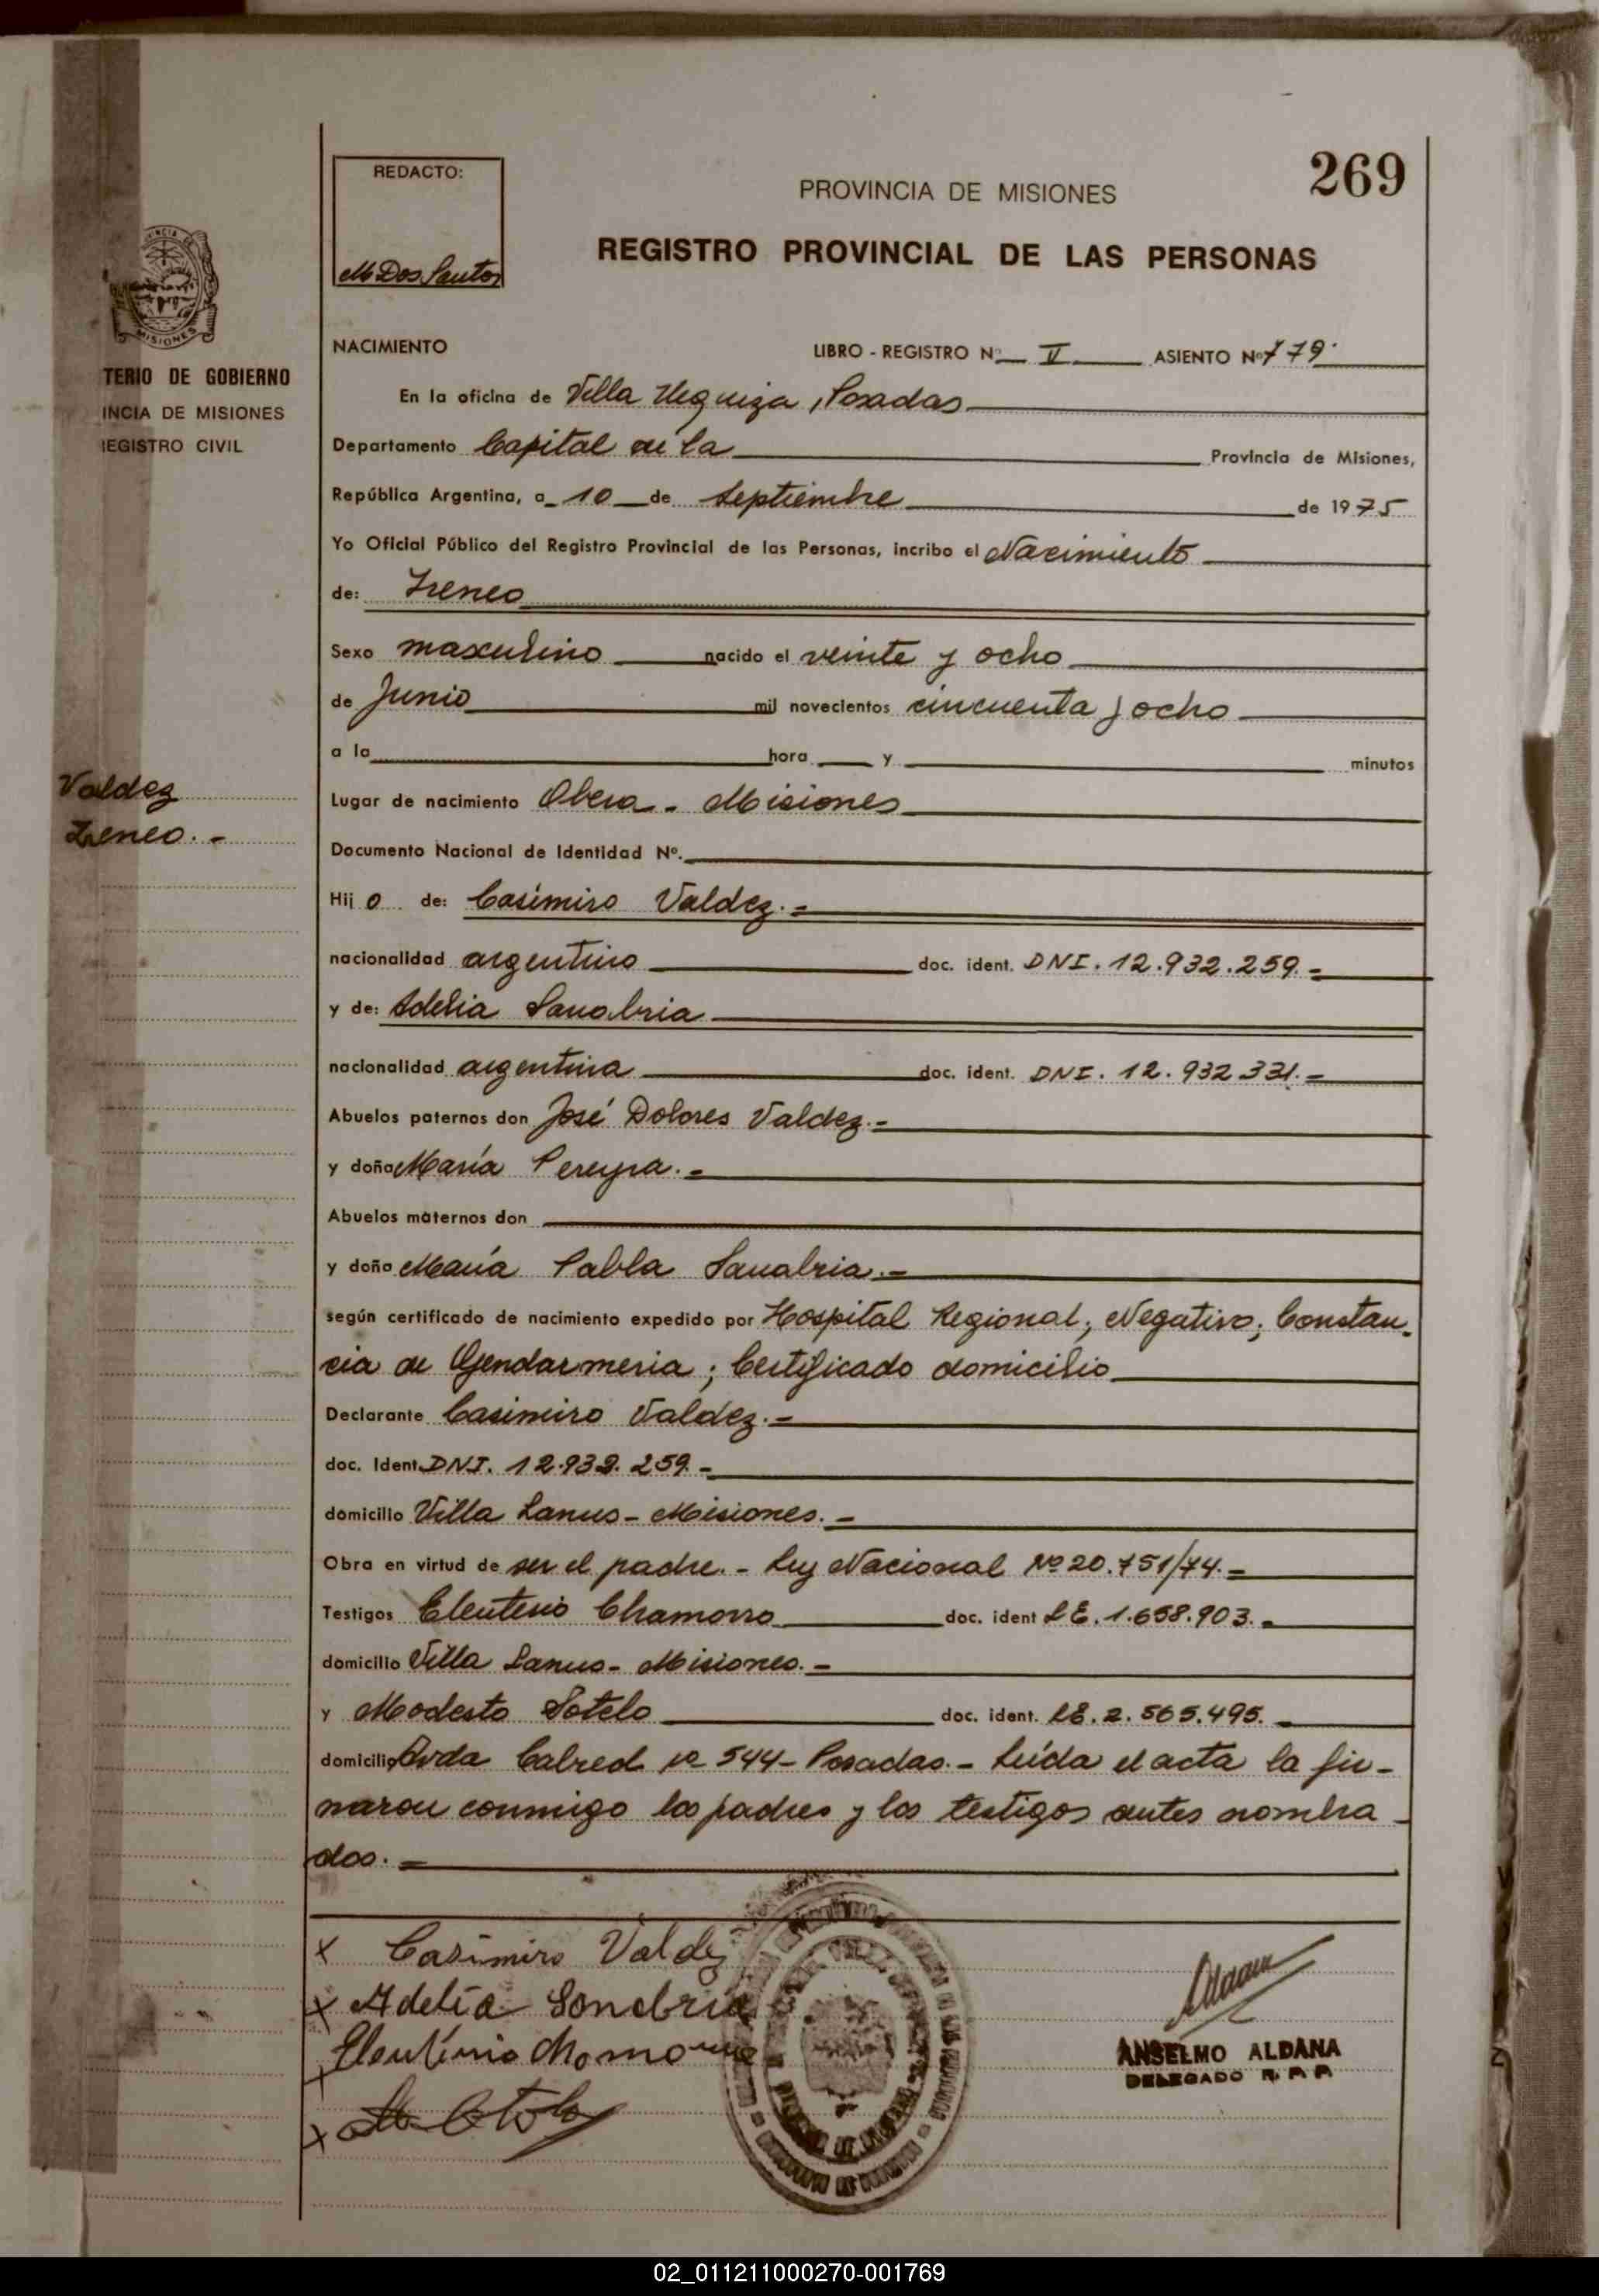 269
REDACTO:
M Dos Santos
PROVINCIA DE MISIONES
REGISTRO PROVINCIAL DE LAS PERSONAS
MISIONES
TERIO DE GOBIERNO
INCIA DE MISIONES
REGISTRO CIVIL
NACIMIENTO LIBRO - REGISTRO Nº V ASIENTO Nº 779
En la oficina de Villa Urquiza, Posadas
Departamento Capital de la Provincia de Misiones,
República Argentina, a 10 de Septiembre de 1975
Yo Oficial Público del Registro Provincial de las Personas, incribo el Nacimiento
de: Ireneo
Sexo masculino nacido el veinte y ocho
de Junio mil novecientos cincuenta y ocho
a la hora y minutos
Valdez
Ireneo.-
Lugar de nacimiento Obera - Misiones
Documento Nacional de Identidad Nº.
Hij o de: Casimiro Valdez.=
nacionalidad argentino doc. ident. DNI. 12.932.259.=
y de: Adelia Sanabria
nacionalidad argentina doc. ident. DNI. 12.932.331.=
Abuelos paternos don José Dolores Valdez.=
y doña María Pereyra.=
Abuelos maternos don
y doña María Pabla Sanabria.=
según certificado de nacimiento expedido por Hospital Regional; Negativo; Constan-
cia de Gendarmeria; Certificado domicilio
Declarante Casimiro Valdez.-
doc. Ident. DNI. 12.932.259.-
domicilio Villa Lanus - Misiones.-
Obra en virtud de ser el padre.- Ley Nacional Nº 20.751/74.=
Testigos Eleuterio Chamorro doc. ident LE. 1.658.903.-
domicilio Villa Lanus - Misiones.-
y Modesto Sotelo doc. ident. LE. 2.565.495.-
domicilio Avda Cabred nº 544 - Posadas.- Leída el acta la fir-
maron conmigo los padres y los testigos antes nombra-
dos.=
x Casimiro Valdez
x Adelia Sonabria
ANSELMO ALDANA
DELEGADO R. P. P.
02_011211000270-001769